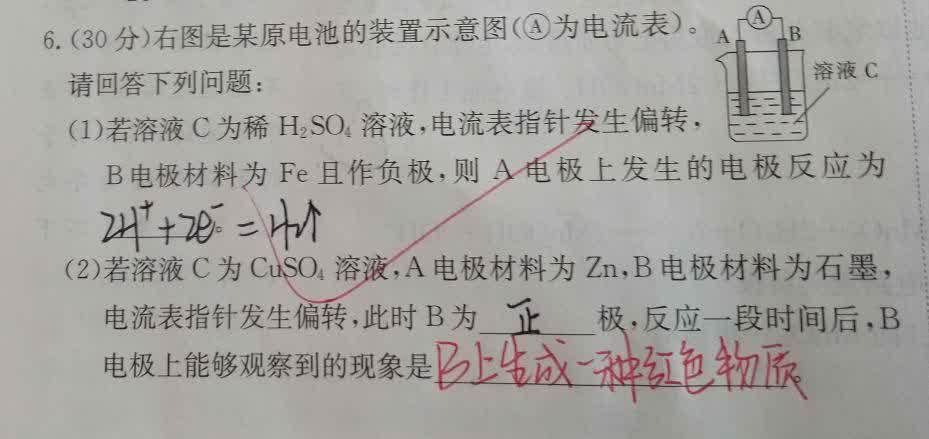 6.(30分)右图是某原电池的装置示意图(Ⓐ为电流表)。
A
B
A
溶液C
请回答下列问题:
(1)若溶液C为稀H₂SO₄溶液,电流表指针发生偏转,
B电极材料为Fe且作负极,则A电极上发生的电极反应为
2H⁺+2e⁻=H₂↑。
(2)若溶液C为CuSO₄溶液,A电极材料为Zn,B电极材料为石墨,
电流表指针发生偏转,此时B为 正 极,反应一段时间后,B
电极上能够观察到的现象是B上生成一种红色物质。